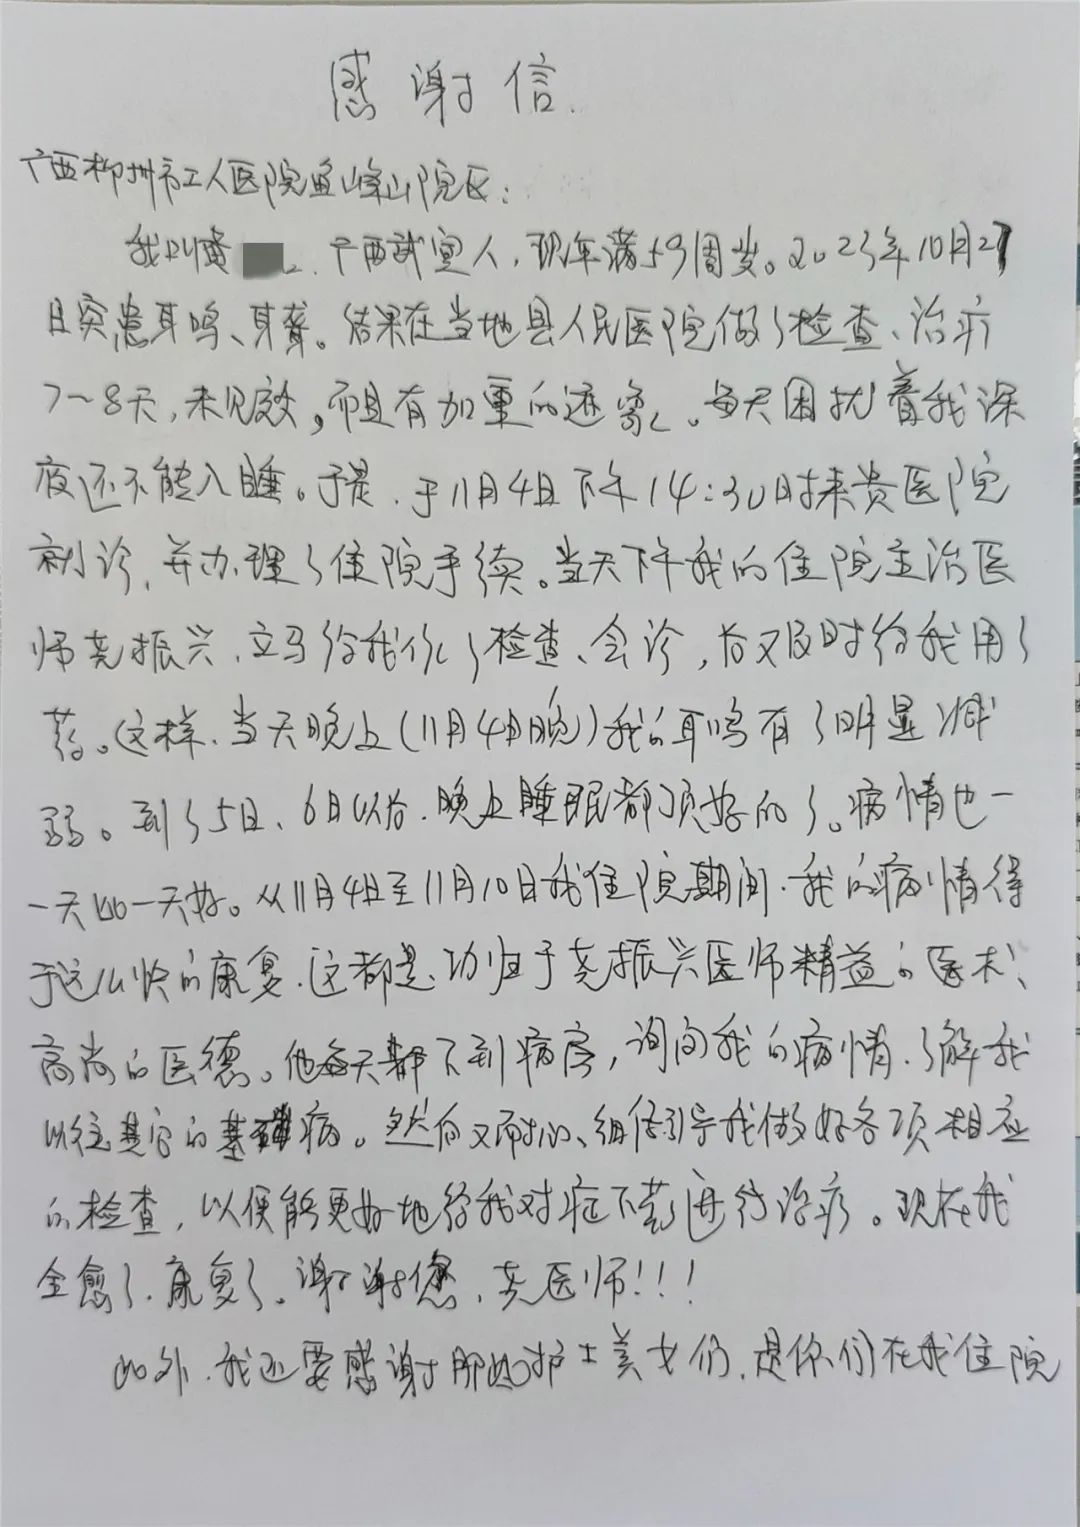 感谢信
广西柳州市工人医院鱼峰山院区:
我叫黄 、广西武宣人,现年满59周岁。2023年10月27
日突患耳鸣、耳聋。结果在当地县人民医院做了检查、治疗
7~8天,未见效,而且有加重的迹象。每天困扰着我深
夜还不能入睡。于是、于11月4日下午14:30时来贵医院
就诊,并办理了住院手续。当天下午我的住院主治医
师尧振兴、立马给我做了检查、会诊,后又及时给我用了
药。这样、当天晚上(11月4日晚)我的耳鸣有了明显减
弱。到了5日、6日以后、晚上睡眠都顶好的了。病情也一
一天比一天好。从11月4日至11月10日我住院期间、我的病情得
于这么快的康复、这都是、功归于尧振兴医师精益的医术、
高尚的医德。他每天都下到病房,询问我的病情、了解我
以往其它的基础病。然后又耐心、细伍引导我做好各项相应
的检查,以便能更好地给我对症下药进行治疗。现在我
全愈了、康复了。谢谢您、尧医师!!!
此外、我还要感谢那些护士美女们、是你们在我住院